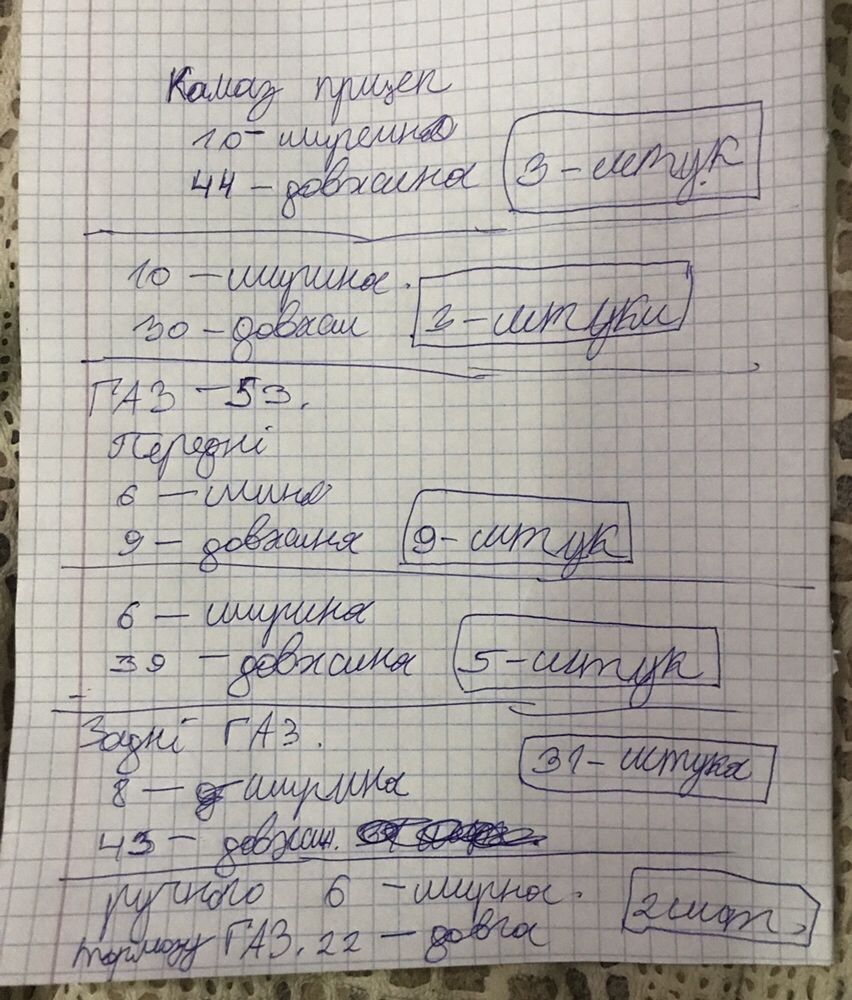 Камаз прицеп
10 - ширина
44 - довжина 3 - штук
10 - ширина.
30 - довжин 3 - штуки
ГАЗ - 53.
Передні
6 -
9 - довжина 9 - штук
6 - ширина
39 - довжина 5 - штук
Задні ГАЗ. 31 - штука
8 - ширина
43 - довжин.
ручного 6 - ширна.
тормозу ГАЗ. 22 - довга 2 шт.